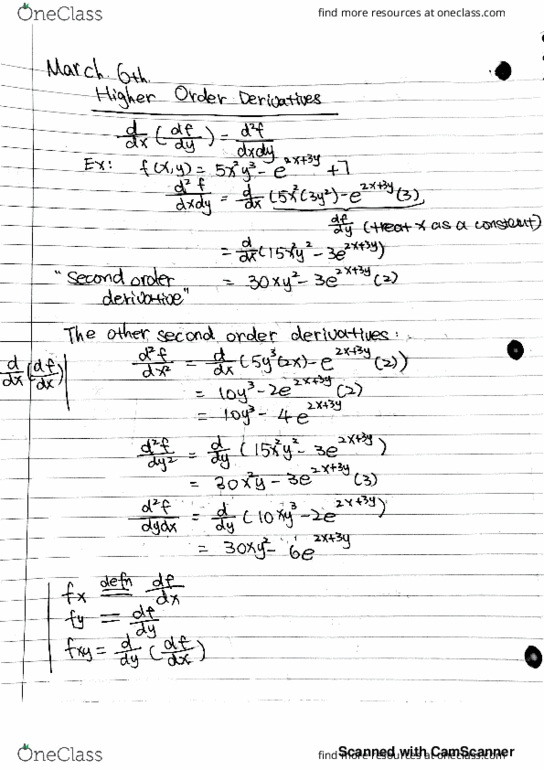 OneClass
find more resources at oneclass.com
March 6th.
Higher Order Derivatives
d/dx (df/dy) = d²f/dxdy
Ex: f(x,y) = 5x²y³ - e^(2x+3y) + 7
d²f/dxdy = d/dx (5x²(3y²) - e^(2x+3y)(3))
df/dy (treat x as a constant)
= d/dx (15x²y² - 3e^(2x+3y))
"second order derivative" = 30xy² - 3e^(2x+3y)(2)
The other second order derivatives:
d/dx (df/dx) | d²f/dx² = d/dx (5y³(2x) - e^(2x+3y)(2))
= 10y³ - 2e^(2x+3y)(2)
= 10y³ - 4e^(2x+3y)
d²f/dy² = d/dy (15x²y² - 3e^(2x+3y))
= 30x²y - 3e^(2x+3y)(3)
d²f/dydx = d/dy (10xy³ - 2e^(2x+3y))
= 30xy² - 6e^(2x+3y)
fx defn = df/dx
fy = df/dy
fxy = d/dy (df/dx)
OneClass
find more resources at oneclass.com
Scanned with CamScanner